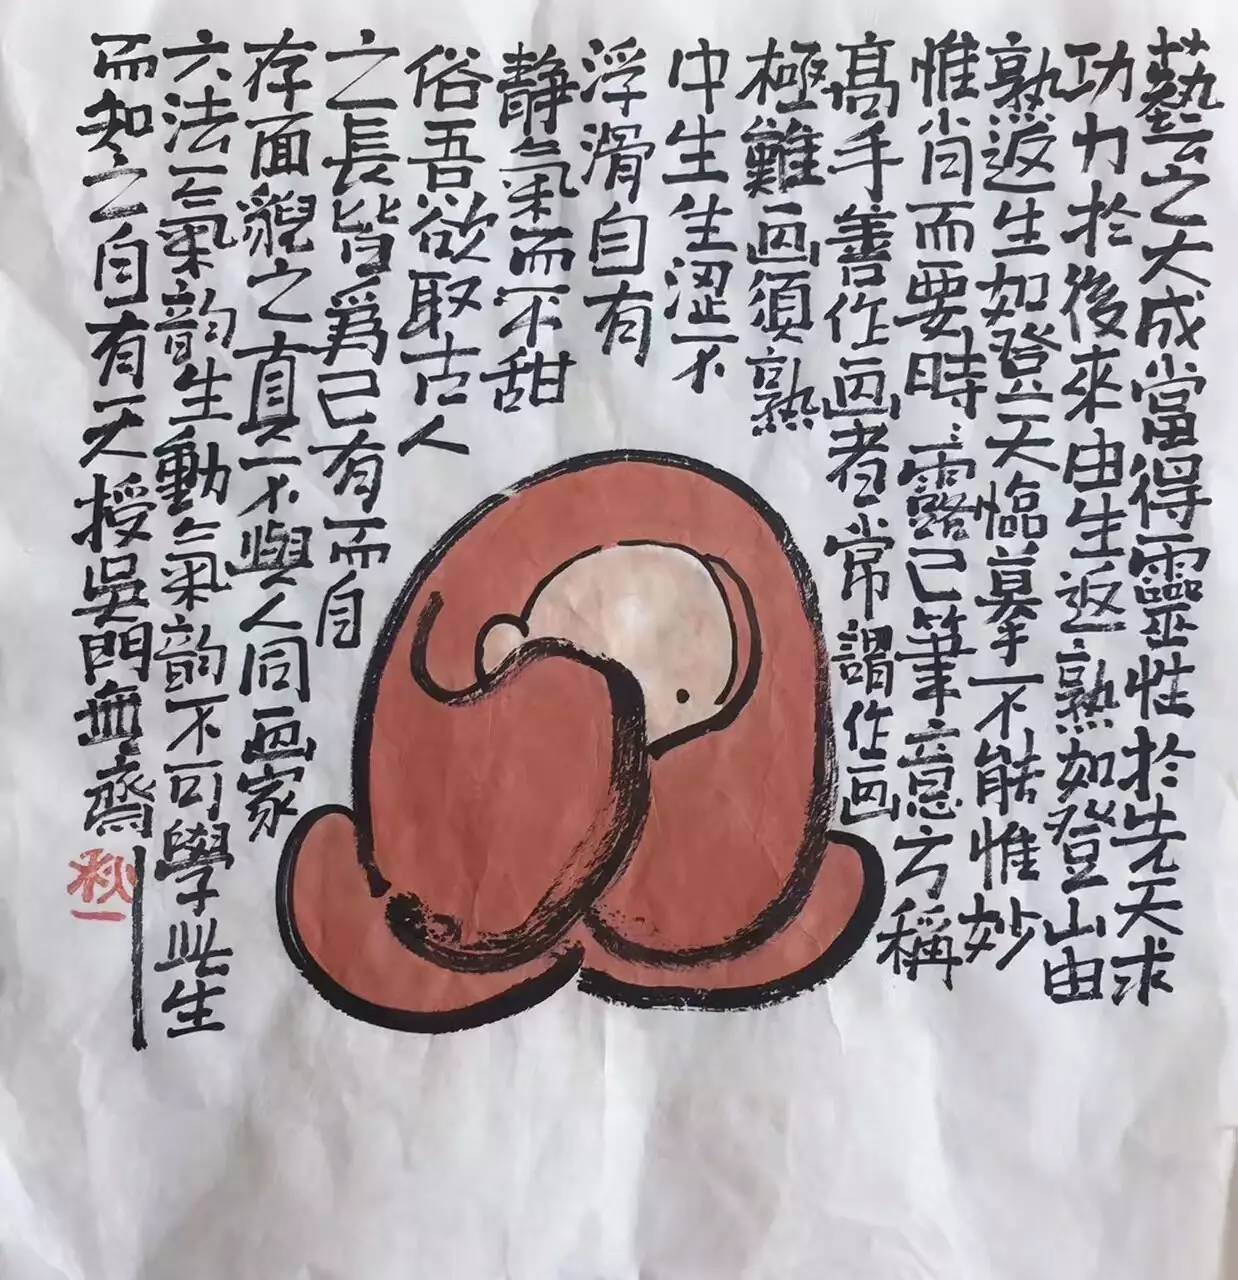 藝之大成當得靈性於先天求
功力於後來由生返熟如登山由
熟返生如登天臨摹不能惟妙
惟肖而要時時露己筆意方稱
高手善作画者常謂作画
極難画須熟
中生生澀不
浮滑自有
静氣而不甜
俗吾欲取古人
之長皆為己有而自
存面貌之真不與人同画家
六法一氣韵生動氣韵不可學此生
而知之自有天授吳門無齋
秋一